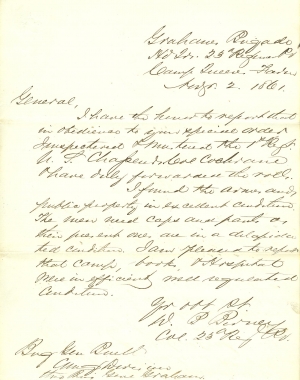 Grahams Brigade
Hd Qrs. 23 Regmn Pv
Camp Queens
2. 1861
General,
I have the honor to report that
in obedience to your special order
I inspected & mustered the 1st Regt
U. S. Chasseurs Col Cochrane
& have duly forwarded the rolls.
I found the arms and
public property in excellent condition
The men need caps and pants as
their present ones are in a dilapida
ted condition. I am pleased to report
that Camp, book, & Hospital
were in efficient, well regulated
condition.
Yr obt St.
D. B. Birney
Col. 23d Reg Pv.
Brig Gen Buell
Comg Division
Graham